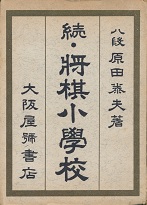 八段 原田泰夫著
続・将棋小學校
大阪屋號書店